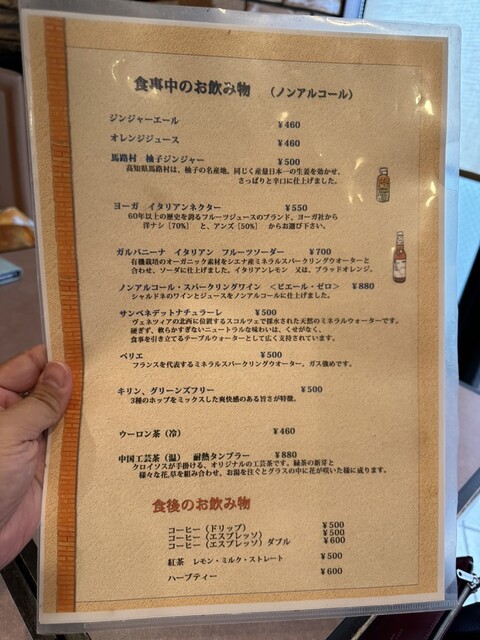 食事中のお飲み物 （ノンアルコール）
ジンジャーエール ￥460
オレンジジュース ￥460
馬路村 柚子ジンジャー ￥500
高知県馬路村は、柚子の名産地。同じく産量日本一の生姜を効かせ、
さっぱりと辛口に仕上げました。
ヨーガ イタリアンネクター ￥550
60年以上の歴史を誇るフルーツジュースのブランド、ヨーガ社から
洋ナシ［70％］ と、アンズ［50％］ からお選び下さい。
ガルバニーナ イタリアン フルーツソーダー ￥700
有機栽培のオーガニック素材をシエナ産ミネラルスパークリングウオーターと
合わせ、ソーダに仕上げました。イタリアンレモン 又は、ブラッドオレンジ。
ノンアルコール・スパークリングワイン ＜ピエール・ゼロ＞ ￥880
シャルドネのワインとジュースをノンアルコールに仕上げました。
サンベネデットナチュラーレ ￥500
ヴェネツィアの北西に位置するスコルツェで採水された天然のミネラルウォーターです。
硬すぎず、軟らかすぎないニュートラルな味わいは、くせがなく、
食事を引き立てるテーブルウォーターとして広く支持されています。
ペリエ ￥500
フランスを代表するミネラルスパークリングウオーター。ガス強めです。
キリン、グリーンズフリー ￥500
3種のホップをミックスした爽快感のある旨さが特徴。
ウーロン茶（冷） ￥460
中国工芸茶（温） 耐熱タンブラー ￥880
クロイソスが手掛ける、オリジナルの工芸茶です。緑茶の新芽と
様々な花,草を組み合わせ、お湯を注ぐとグラスの中に花が咲いた様に成ります。
食後のお飲み物
コーヒー（ドリップ） ￥500
コーヒー（エスプレッソ） ￥500
コーヒー（エスプレッソ）ダブル ￥600
紅茶 レモン・ミルク・ストレート ￥500
ハーブティー ￥600